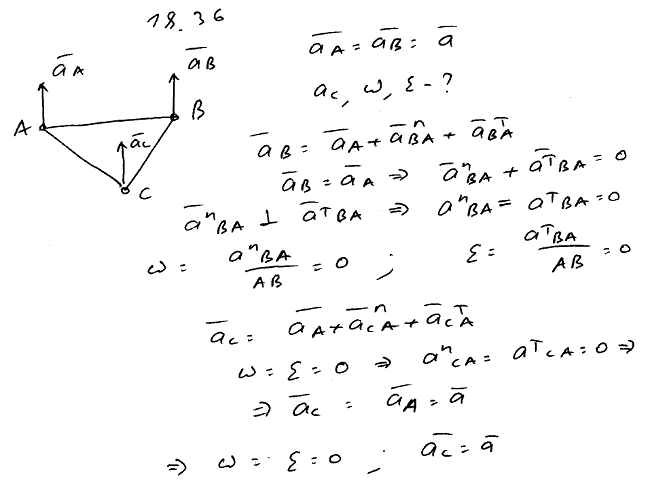 18.36
a̅A
a̅B
A
B
a̅c
C
a̅A = a̅B = a̅
ac, ω, ε - ?
a̅B = a̅A + a̅ⁿBA + a̅ᵀBA
a̅B = a̅A ⇒ a̅ⁿBA + a̅ᵀBA = 0
a̅ⁿBA ⊥ a̅ᵀBA ⇒ aⁿBA = aᵀBA = 0
ω = aⁿBA / AB = 0 ; ε = aᵀBA / AB = 0
a̅c = a̅A + a̅ⁿcA + a̅ᵀcA
ω = ε = 0 ⇒ aⁿcA = aᵀcA = 0 ⇒
⇒ a̅c = a̅A = a̅
⇒ ω = ε = 0 ; a̅c = a̅